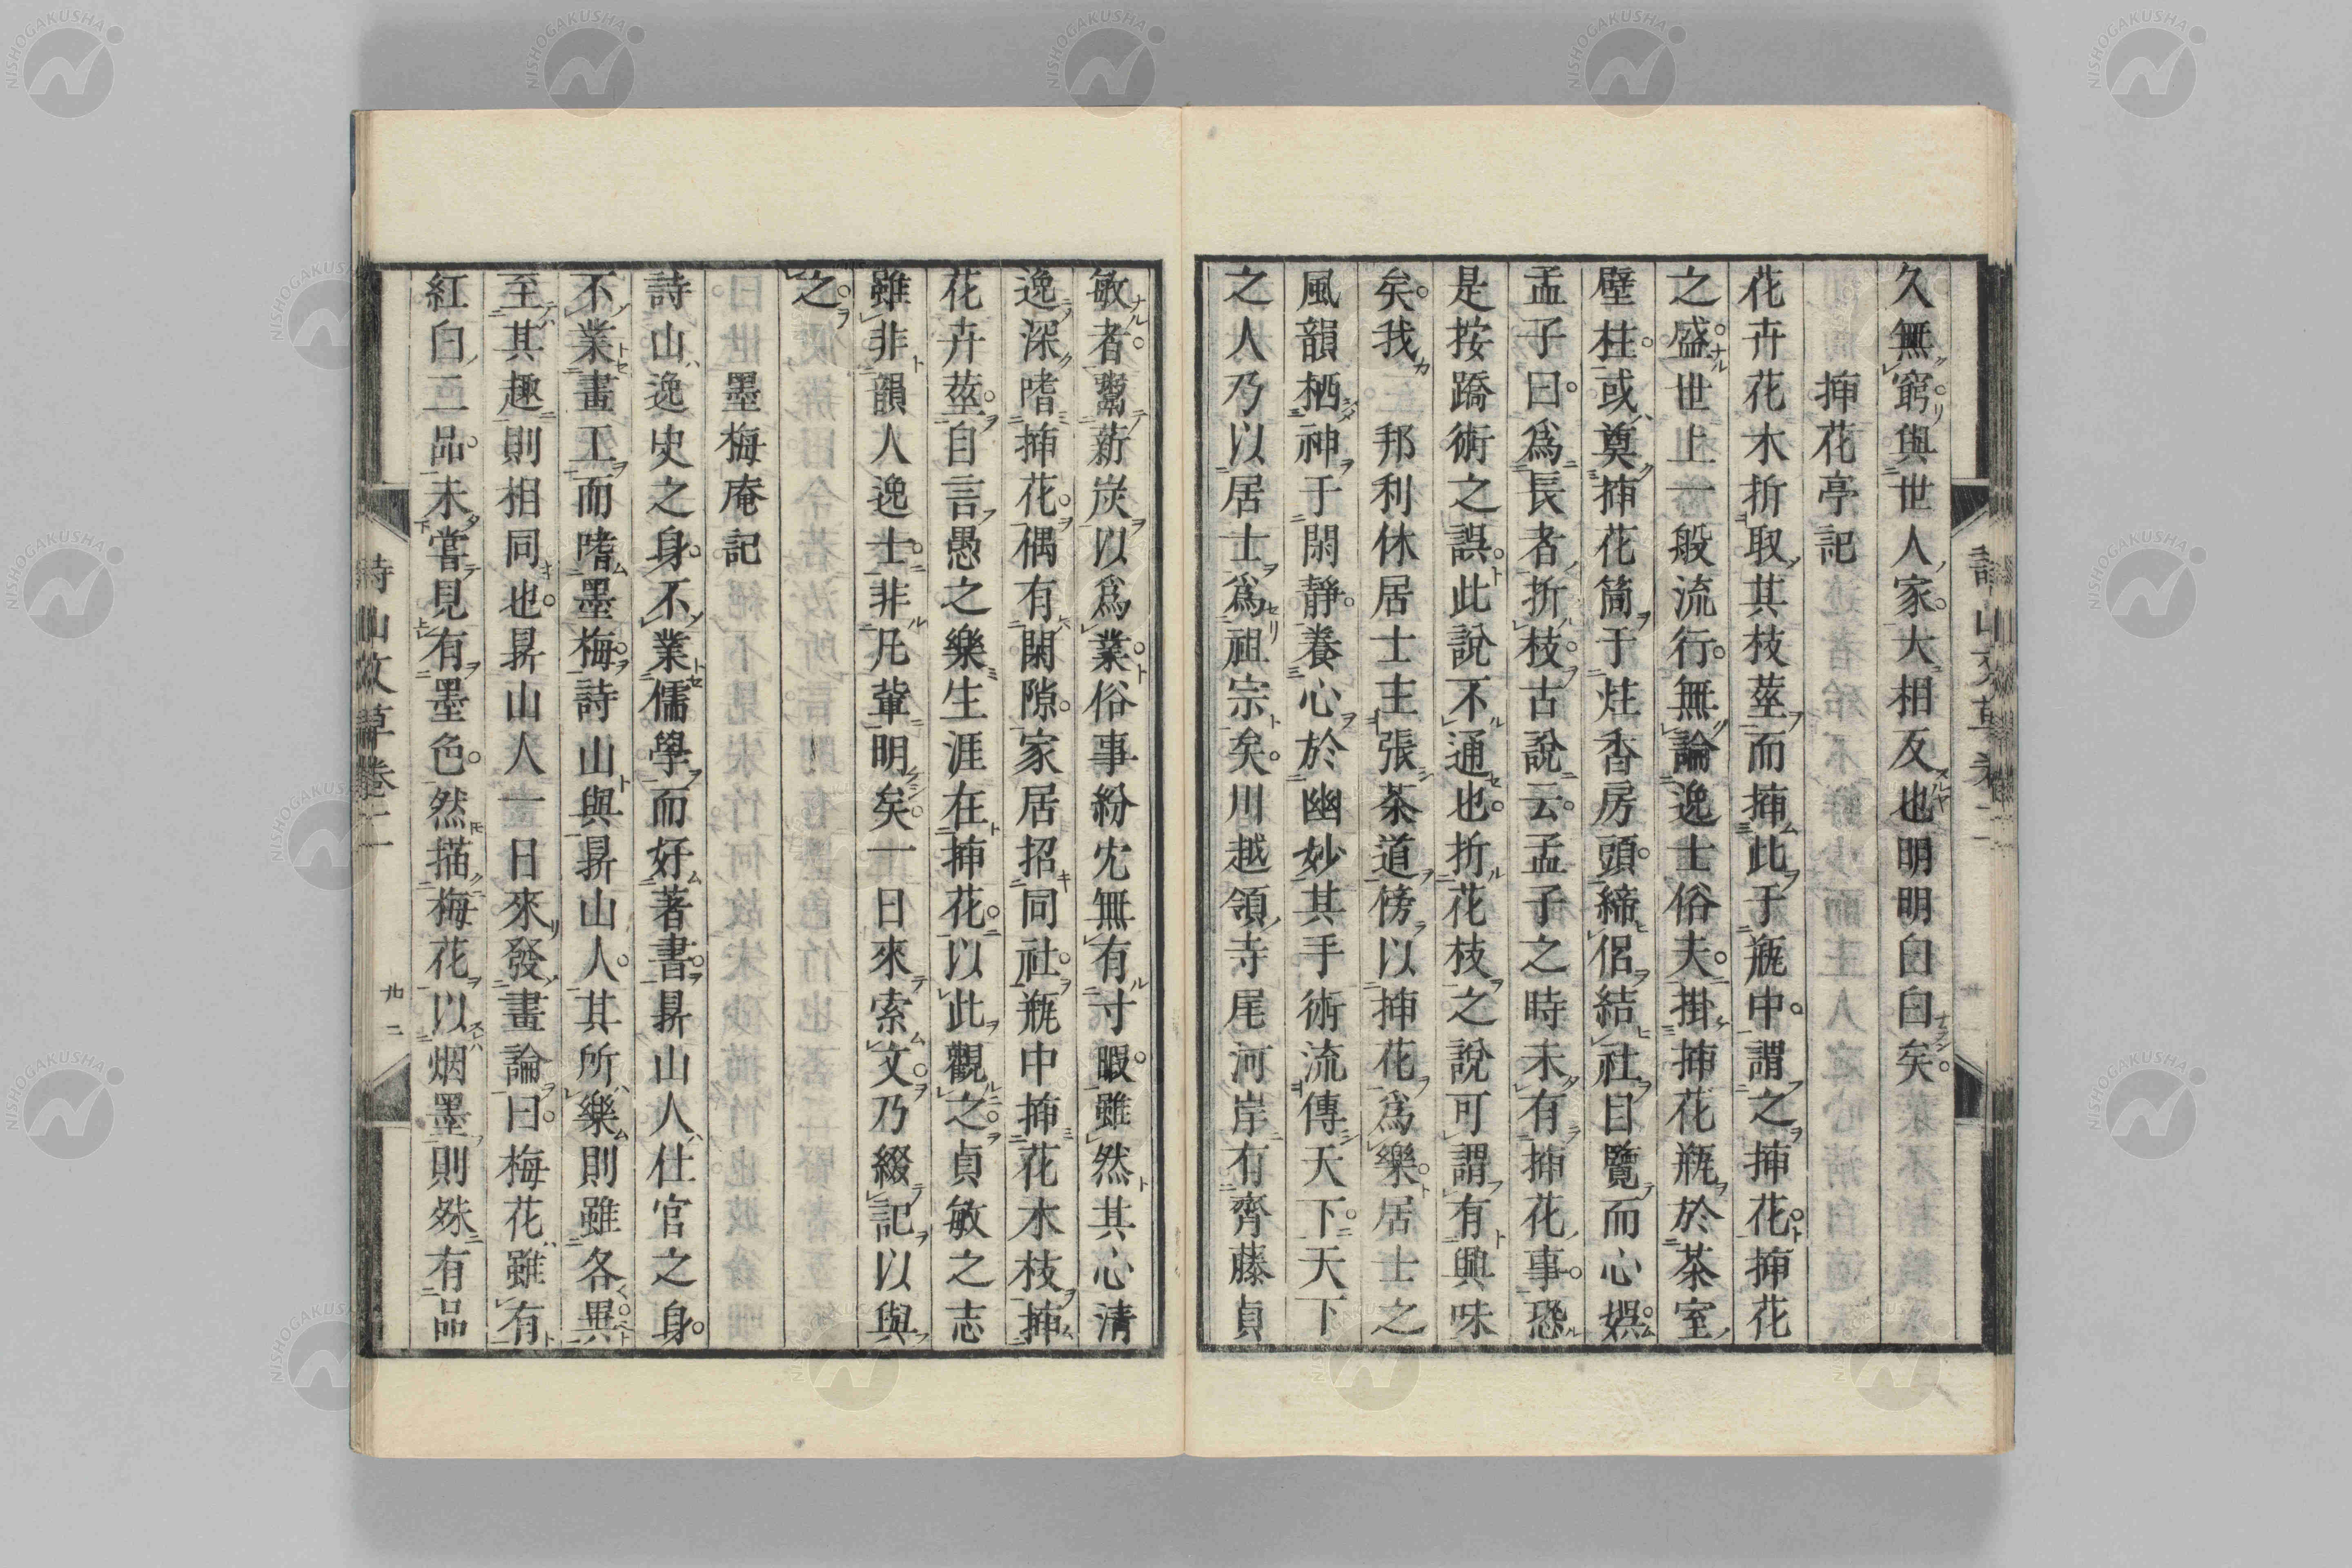 久無窮與世人家大相反也明明白白矣
挿花亭記
花卉花木折取其枝莖而挿此于瓶中謂之挿花挿花
之盛世上一般流行無論逸士俗夫掛挿花瓶於茶室
壁柱或奠挿花筒于炷香房頭締侶結社目覽而心娯
孟子曰爲長者折枝古說云孟子之時未有挿花事恐
是按蹻術之誤此說不通也折花枝之說可謂有興味
矣我邦利休居士主張茶道傍以挿花爲樂居士之
風韻栖神于閑靜養心於幽妙其手術流傳天下天下
之人乃以居士爲祖宗矣川越領寺尾河岸有齊藤貞
敏者鬻薪炭以爲業俗事紛冗無有寸暇雖然其心清
逸深嗜挿花偶有閑隙家居招同社瓶中挿花木枝挿
花卉莖自言愚之樂生涯在挿花以此觀之貞敏之志
雖非韻人逸士非凡輩明矣一日來索文乃綴記以與
之
墨梅庵記
詩山逸史之身不業儒學而好著書昇山人仕官之身
不業畫工而嗜墨梅詩山與昇山人其所樂則雖各異
至其趣則相同也昇山人一日來發畫論曰梅花雖有
紅白二品未嘗見有墨色然描梅花以烟墨則殊有品
詩山文草卷二
廿二